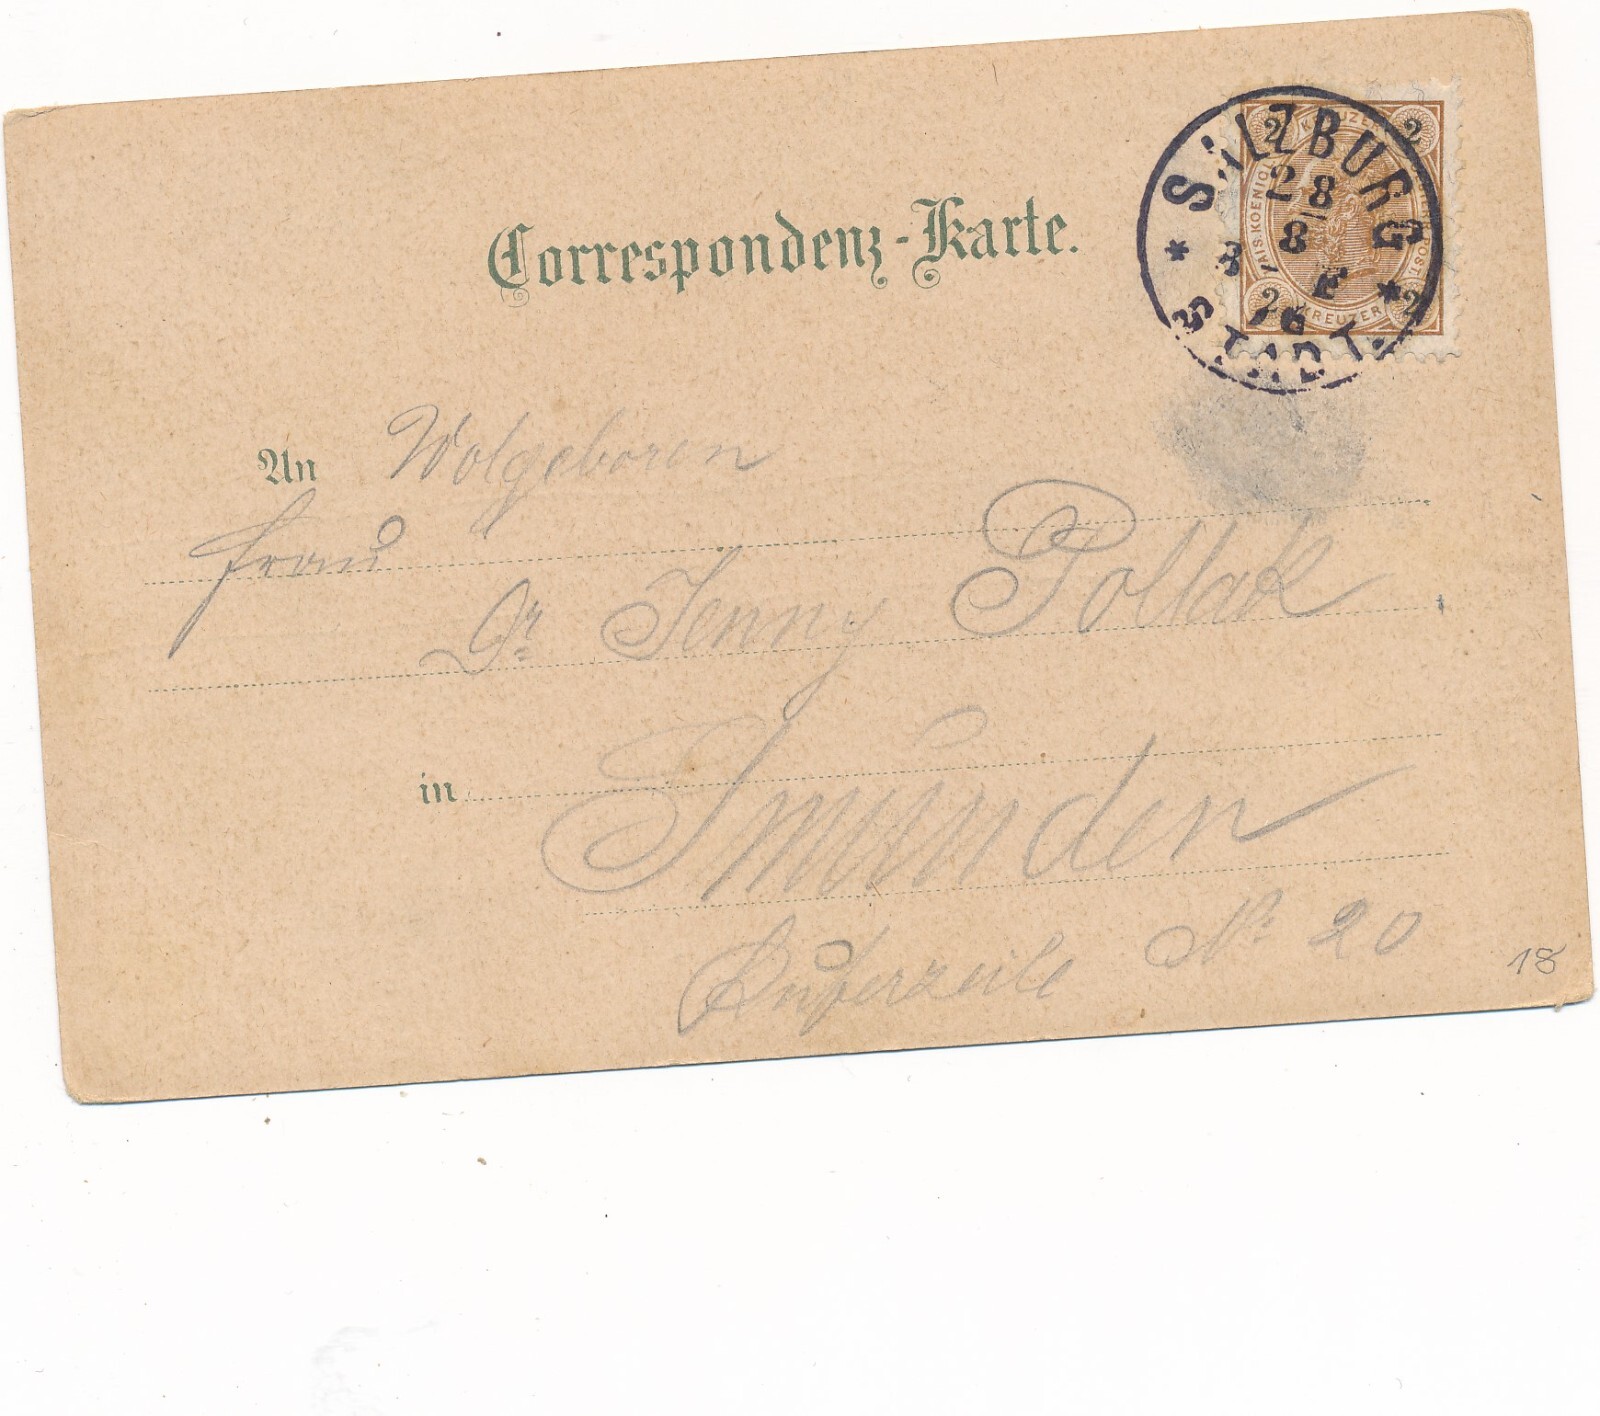 Correspondenz-Karte.
SALZBURG
28
8
3 E
96
STADT.
KAIS. KOENIGL.
KREUZER
2 2
2 2
KREUZER
An Wolgeboren
Frau
Dr Jenny Pollak
in Gmunden
No 20
18